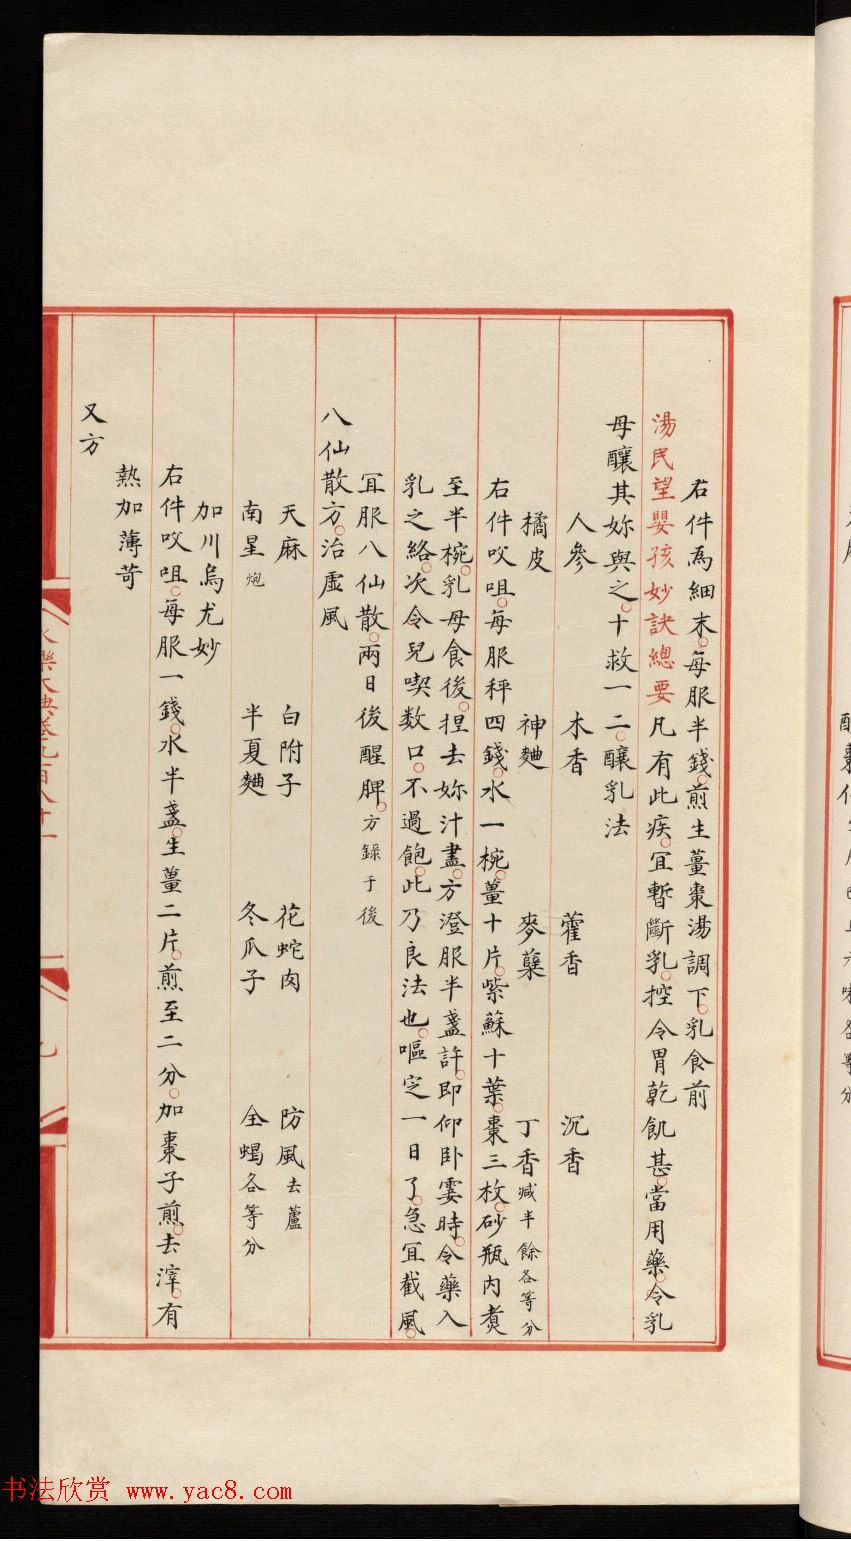 右件為細末每服半錢煎生薑棗湯調下乳食前
湯民望嬰孩妙訣總要凡有此疾宜暫斷乳控令胃乾飢甚當用藥令乳
母釀其妳與之十救一二釀乳法
人參 木香 藿香 沉香
橘皮 神麯 麥蘖 丁香減半餘各等分
右件㕮咀每服秤四錢水一椀薑十片紫蘇十葉棗三枚砂瓶內煑
至半椀乳母食後揑去妳汁盡方澄服半盞許即仰卧霎時令藥入
乳之絡次令兒喫数口不過飽此乃良法也嘔定一日了急宜截風
宜服八仙散兩日後醒脾方録于後
八仙散方治虛風
天麻 白附子 花蛇肉 防風去蘆
南星炮 半夏麯 冬瓜子 全蝎各等分
加川烏尤妙
右件㕮咀每服一錢水半盞生薑二片煎至二分加棗子煎去滓有
熱加薄苛
又方
永樂大典卷九百八十一
九
书法欣赏 www.yac8.com